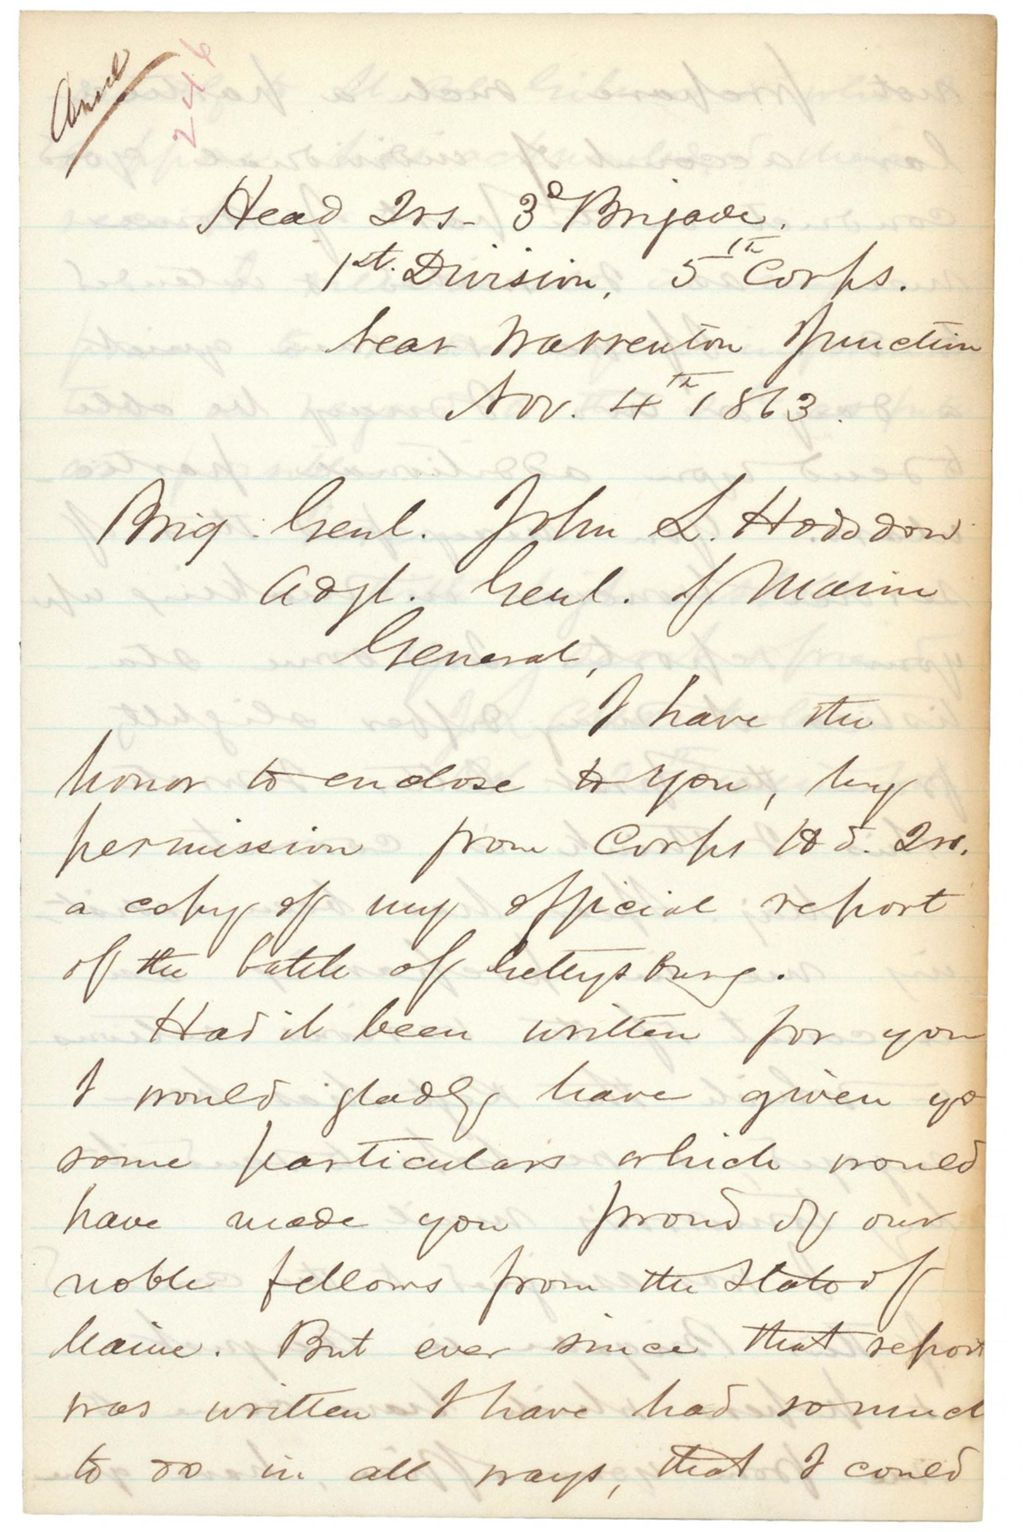 244
Head Qrs- 3d Brigade.
1st. Division, 5th Corps.
Near Warrenton Junction
Nov. 4th 1863.
Brig. Genl. John L. Hodsdon
Adgt. Genl. of Maine
General,
I have the
honor to enclose to you, by
permission from Corps Hd. Qrs.
a copy of my official report
of the battle of Gettysburg.
Had it been written for you
I would gladly have given yo
some particulars which would
have made you proud of our
noble fellows from the State of
Maine. But ever since that report
was written I have had so much
to do in all ways, that I could